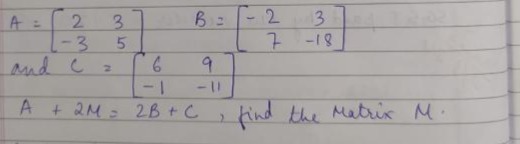 A = [ 2 3 ] B = [ - 2 3 ]
[ -3 5 ] [ 7 -18 ]
and C = [ 6 9 ]
[ -1 -11 ]
A + 2M = 2B + C , find the Matrix M.